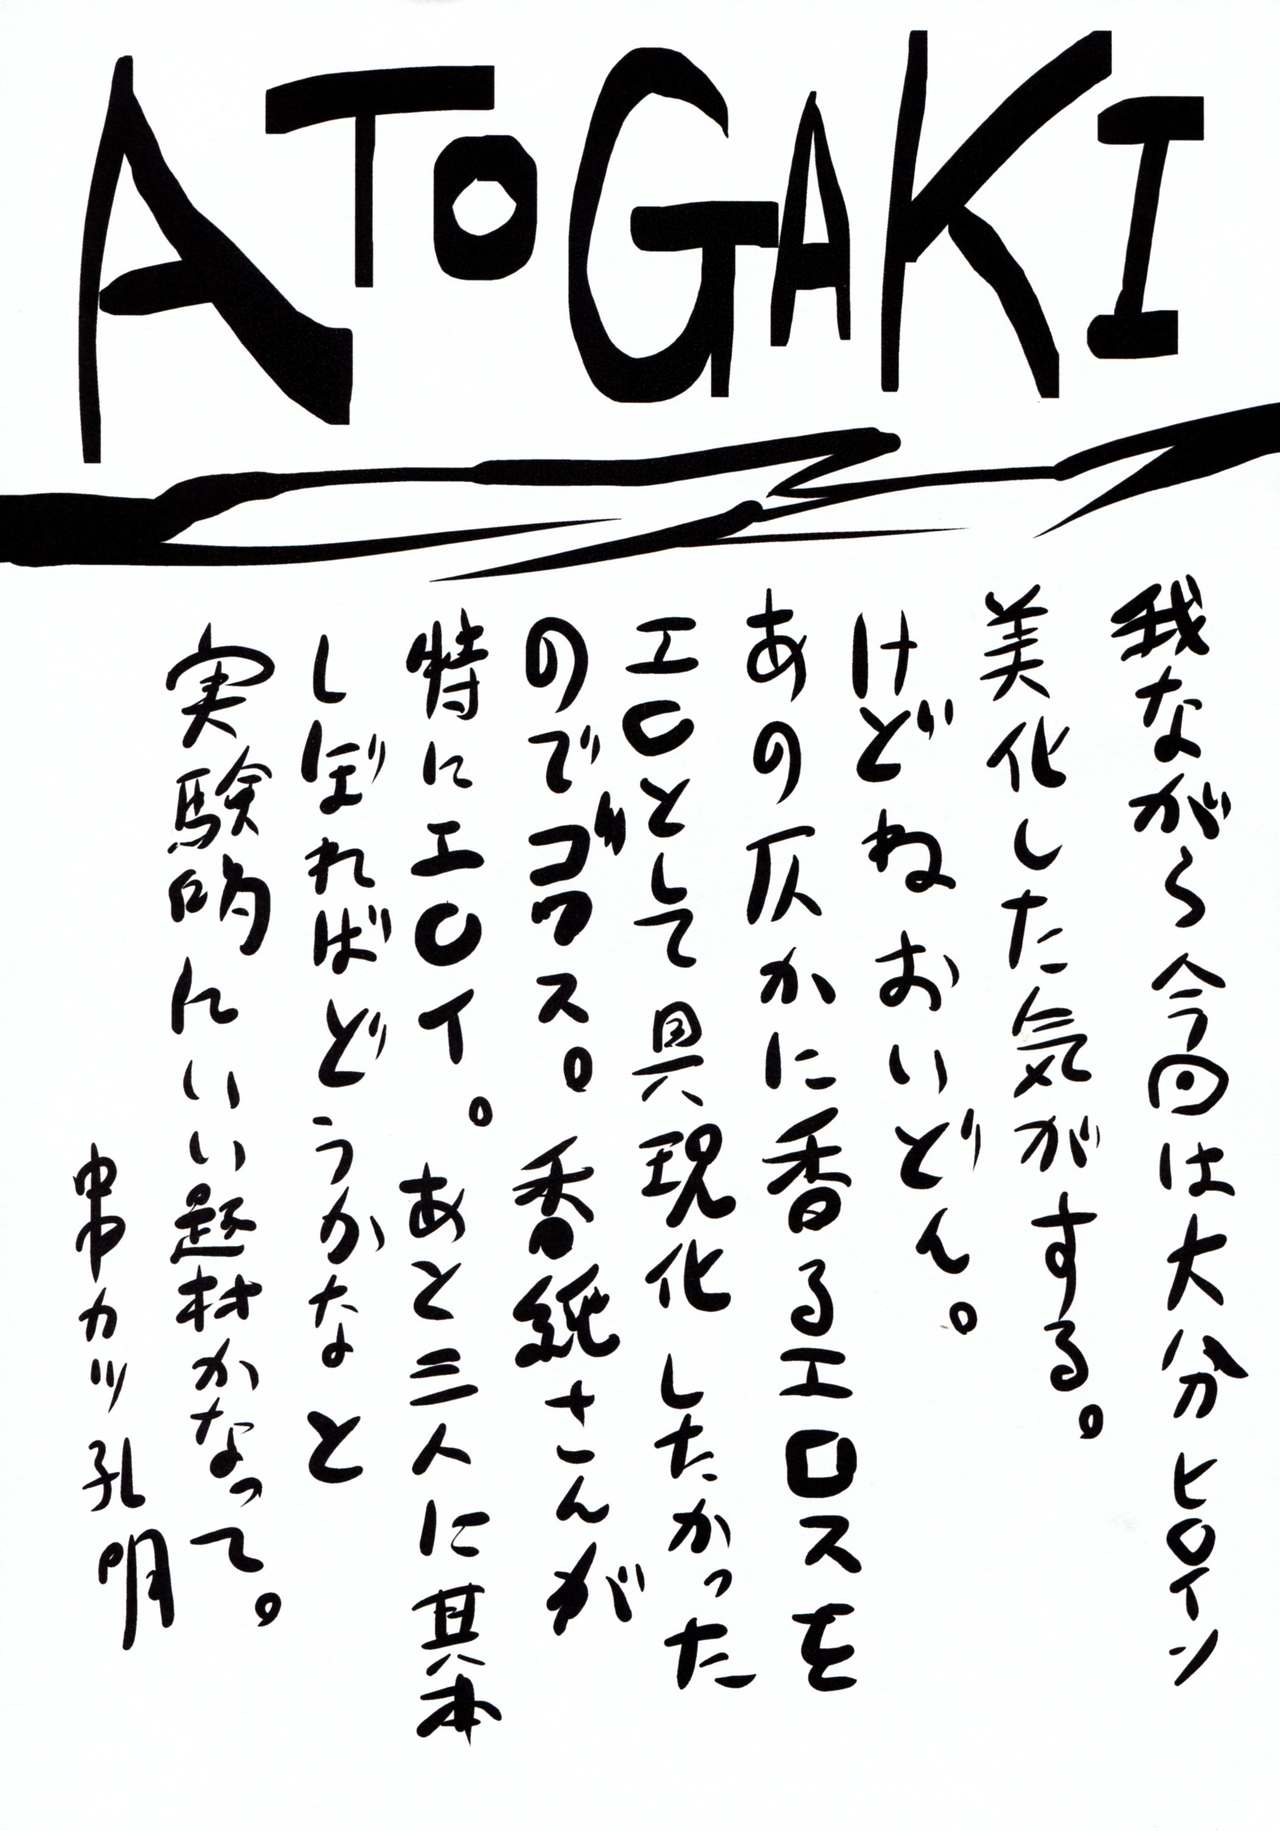 ATOGAKI
我ながら今回は大分ヒロイン
美化した気がする。
けどねおいどん。
あの仄かに香るエロスを
エロとして具現化したかった
のでゴワス。香紙さんが
特にエロイ。あと三人に基本
しぼればどうかなと
実験的にいい題材かなって。
串カツ孔明